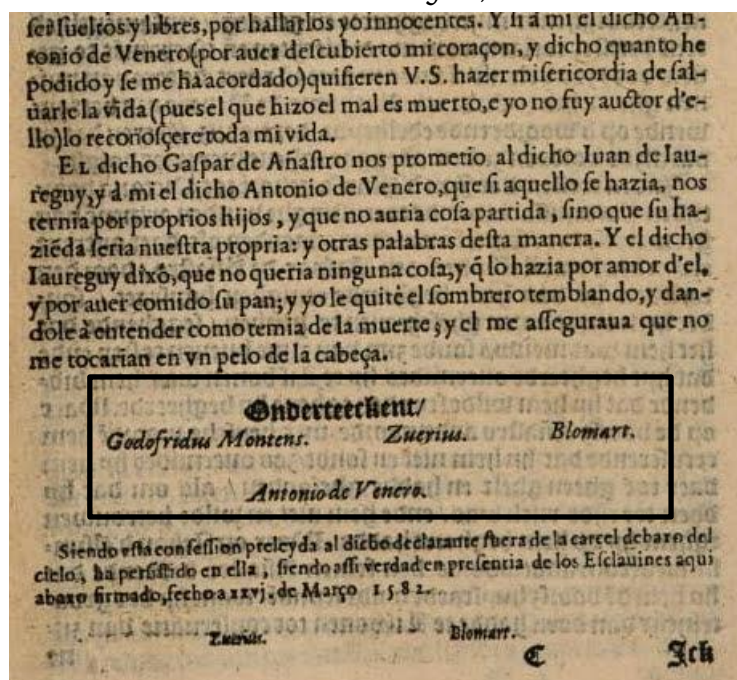 ser sueltos y libres, por hallarlos yo innocentes. Y si a mi el dicho An-
tonio de Venero (por auer descubierto mi coraçon, y dicho quanto he
podido y se me ha acordado) quisieren V.S. hazer misericordia de sal-
uarle la vida (pues el que hizo el mal es muerto, e yo no fuy auctor d'e-
llo) lo reconosçere toda mi vida.
EL dicho Gaspar de Añastro nos prometio al dicho Iuan de Iau-
reguy, y à mi el dicho Antonio de Venero, que si aquello se hazia, nos
ternia por proprios hijos, y que no auria cosa partida, sino que su ha-
ziẽda seria nuestra propria: y otras palabras desta manera. Y el dicho
Iaureguy dixo, que no queria ninguna cosa, y q̃ lo hazia por amor d'el,
y por auer comido su pan; y yo le quité el sombrero temblando, y dan-
dole à entender como temia de la muerte; y el me asseguraua que no
me tocarian en vn pelo de la cabeça.
Onderteeckent/
Godofridus Montens. Zuerius. Blomart.
Antonio de Venero.
Siendo esta confession preleyda al dicho declarante fuera de la carcel debaxo del
cielo, ha persistido en ella, siendo assi verdad en presencia de los Esclauines aqui
abaxo firmado, fecho a xxvj. de Março 1582.
Zuerius. Blomart.
C Ick